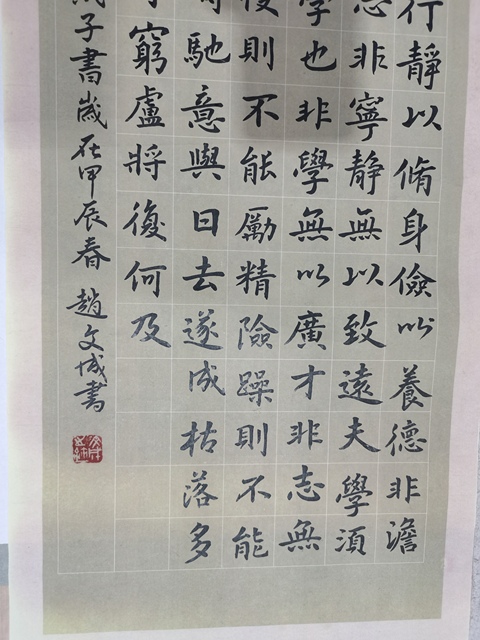 行靜以脩身儉以養德非澹
志非寧靜無以致遠夫學須
學也非學無以廣才非志無
則不能勵精險躁則不能
馳意與日去遂成枯落多
窮盧將復何及
子書歲在甲辰春趙文成書